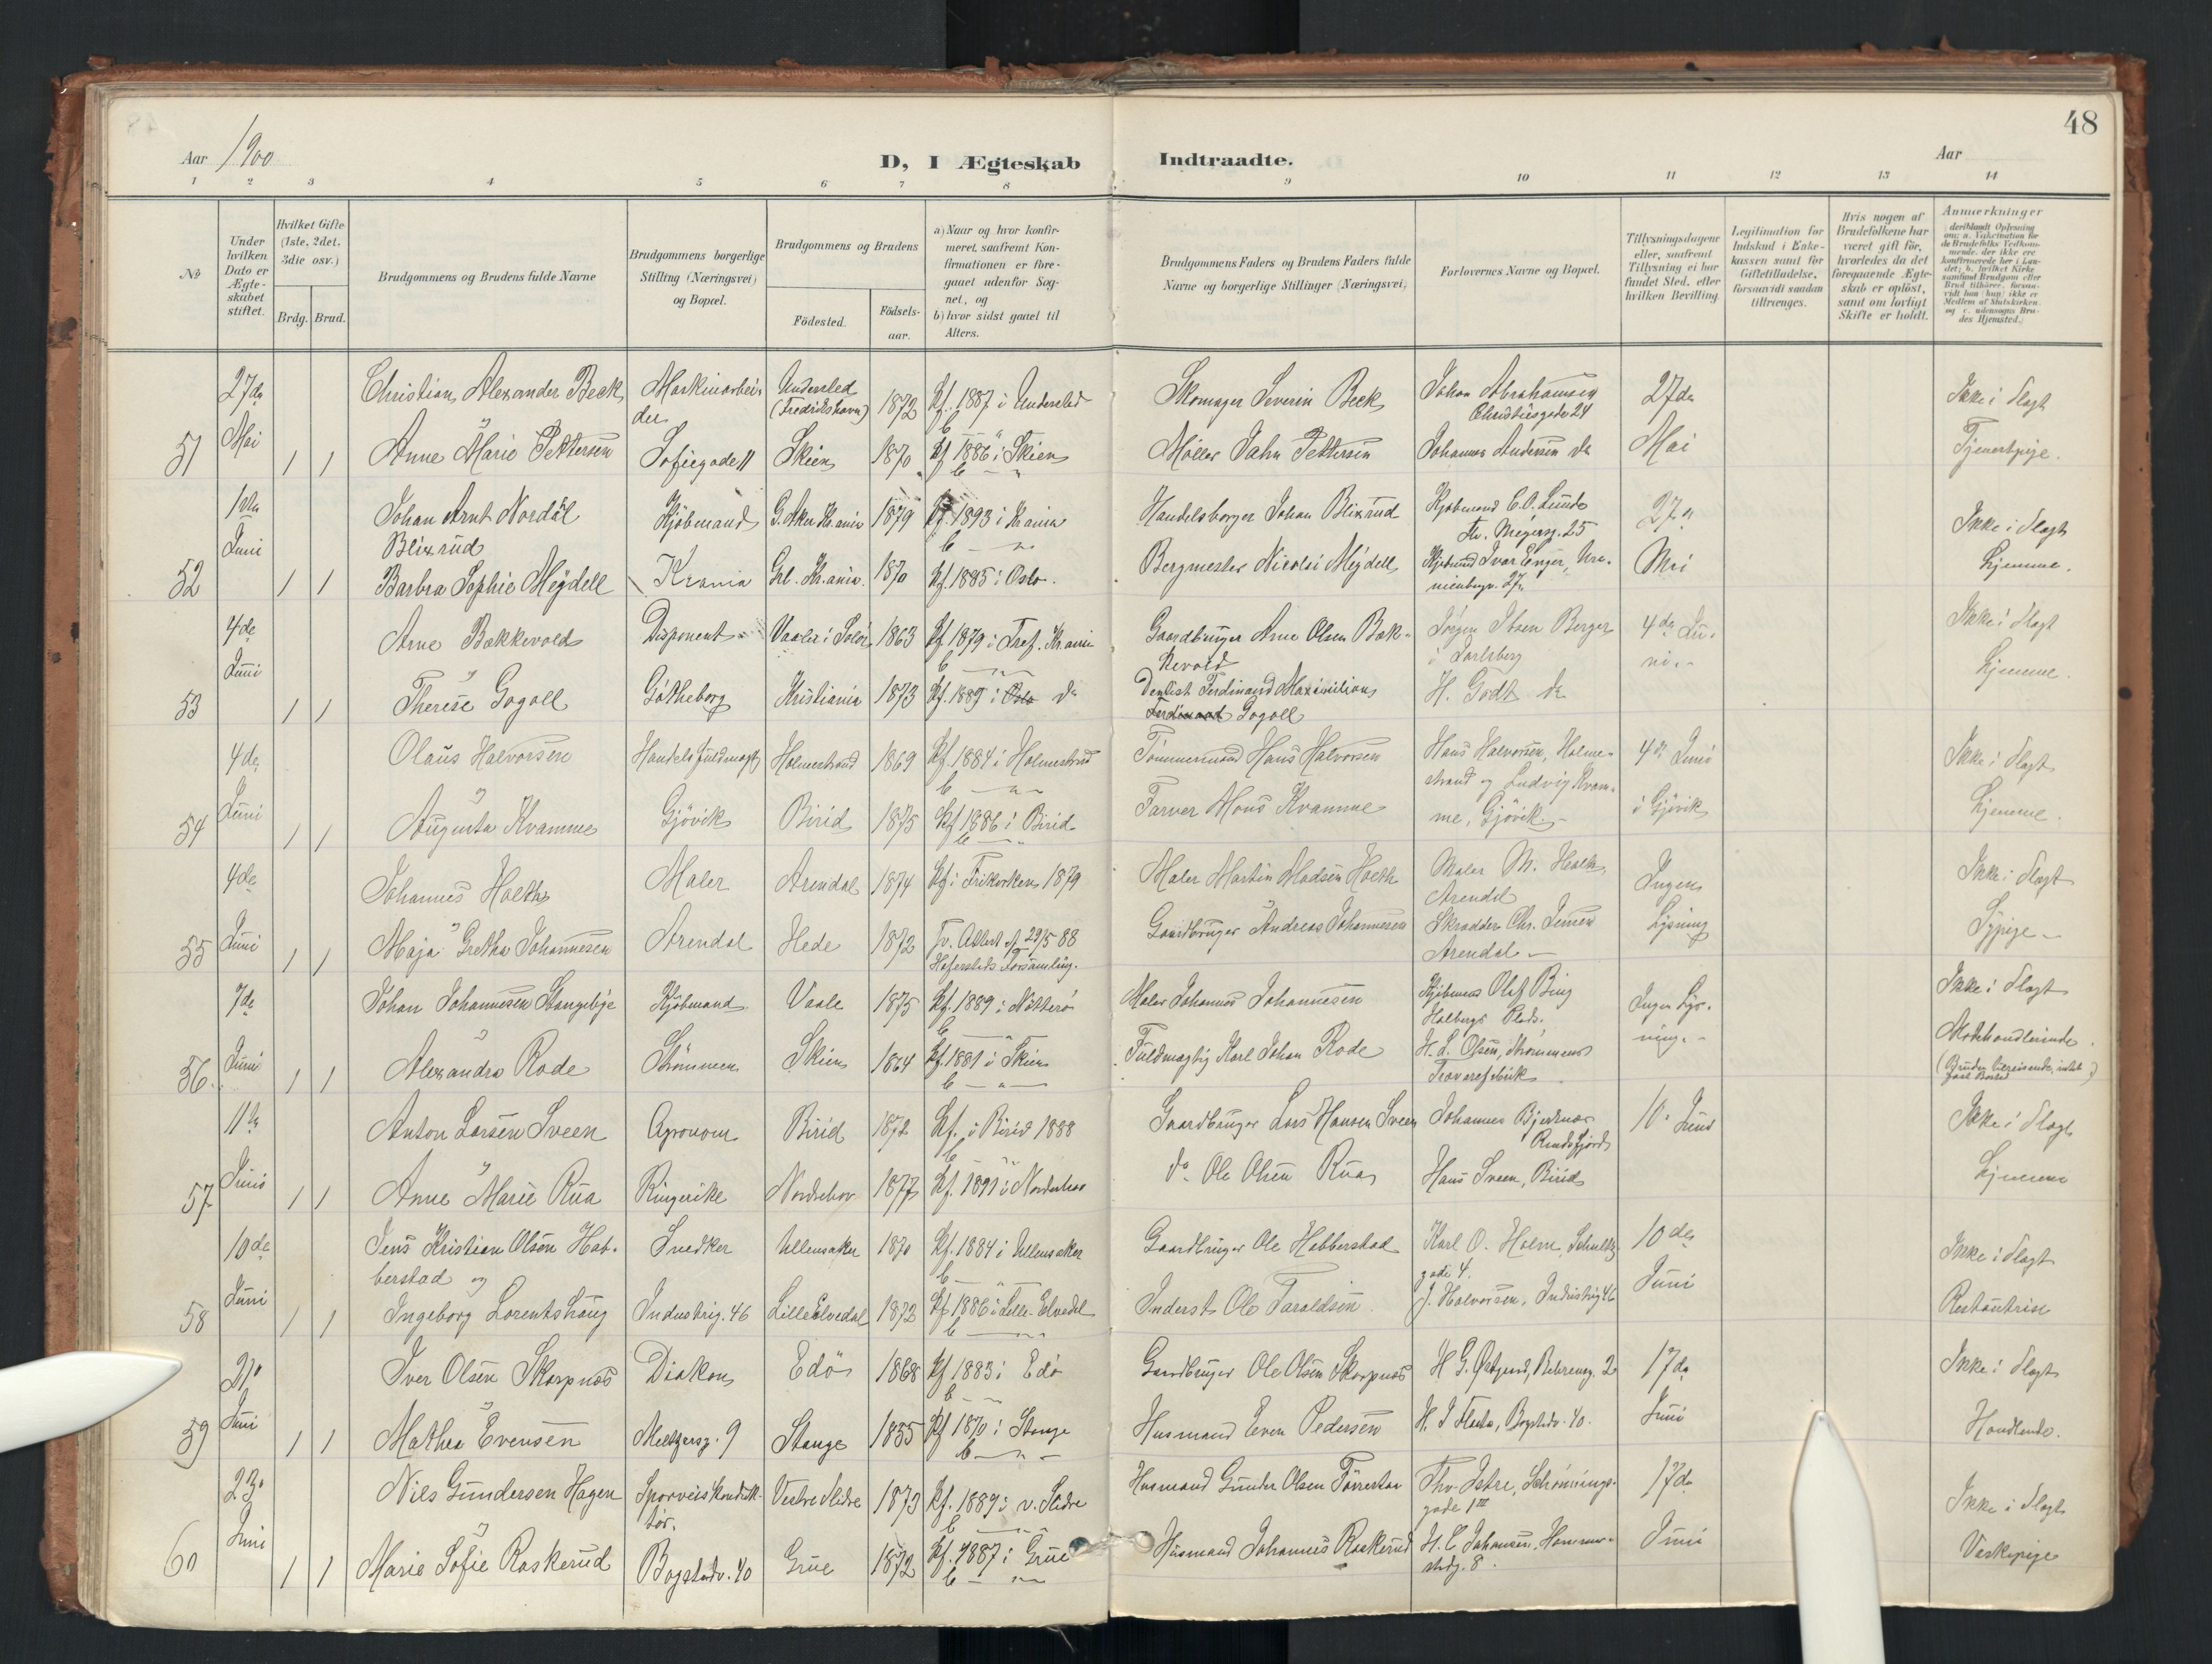 48
Aar 1900
D, I Ægteskab Indtraadte.
Aar
1 2 3 4 5 6 7 8 9 10 11 12 13 14
No
Under hvilken Dato er Ægteskabet stiftet.
Hvilket Gifte (1ste, 2det, 3die osv.)
Brdg. Brud.
Brudgommens og Brudens fulde Navne
Brudgommens borgerlige Stilling (Næringsvei) og Bopæl.
Brudgommens og Brudens
Födested.
Födselsaar.
a) Naar og hvor konfirmeret, saafremt Konfirmationen er foregaaet udenfor Sognet, og
b) hvor sidst gaaet til Alters.
Brudgommens Faders og Brudens Faders fulde Navne og borgerlige Stillinger (Næringsvei)
Forlovernes Navne og Bopæl.
Tillysningsdagene eller, saafremt Tillysning ei har fundet Sted, efter hvilken Bevilling.
Legitimation for Indskud i Enkekassen samt for Giftetilladelse, forsaavidt saadan tiltrænges.
Hvis nogen af Brudefolkene har været gift för, hvorledes da det foregaaende Ægteskab er oplöst, samt om lovligt Skifte er holdt.
Anmærkninger
27de Christian Alexander Beck Maskinarbeider Understed (Fredrikshavn) 1872 Kf. 1887 i Understed Skomager Severin Beck Johan Abrahamsen Christiesgade 24 27de Ikke i Slagt
51 Mai 1 1 Anne Marie Pettersen Sofiegade 11 Skien 1870 Kf 1886 i Skien Møller Jahn Pettersen Johannes Andersen do Mai Tjenestpige.
1ste Johan Arnt Nordal Blixrud Kjøbmand G. Aker Krania 1879 Kf. 1893 i Krania Handelsborger Johan Blixrud Kjøbmand C. O. Lunde Th. Meyersg. 25 27de Ikke i Slagt
52 Juni 1 1 Barbra Sophie Mejdell Krania Grl. Krania. 1870 Kf. 1885 i Oslo. Bergmester Nicolai Mejdell Kjøbmand Ivar Enger, Uranienborgv. 27 Mai hjemme.
4de Arne Bakkevold Disponent Vaaler i Solør 1863 Kf 1879 i Tref. Krania Gaardbruger Arne Olsen Bakkevold Jørgen Ibsen Berger i Jarlsberg 4de Juni.- Ikke i Slagt
53 Juni 1 1 Therese Gogoll Gøtheborg Kristiania 1873 Kf. 1889 i Oslo do Dentist Ferdinand Maximilian Ferdinand Gogoll H. Godt do hjemme.
4de Olaus Halvorsen Handelsfuldmægt Holmestrand 1869 Kf. 1884 i Holmestrand Tømmermand Hans Halvorsen Hans Halvorsen, Holmestrand og Ludvig Kvamme, Gjøvik.- 4de Juni i Gjøvik Ikke i Slagt
54 Juni 1 1 Augusta Kvamme Gjøvik Birid 1875 Kf 1886 i Birid Farver Mons Kvamme hjemme.
4de Johannes Holth Maler Arendal 1874 Kf. i Frikirken 1879 Maler Martin Madsen Holth Maler M. Holth Arendal Ingen Lysning Ikke i Slagt
55 Juni 1 1 Maja Gretha Johannesen Arendal Hede 1872 29/5 88 Gaardbruger Andreas Johannesen Skrædder Chr. Jensen Arendal Sypige
7de Johan Johannesen Stangebye Kjøbmand Vaale 1875 Kf. 1889 i Nøtterø Maler Johannes Johannesen Kjøbmand Olaf Bing Holbergs Plads. Ingen Lysning.- Ikke i Slagt
56. Juni 1 1 Alexandra Rode Strømmen Skien 1864 Kf. 1881 i Skien Fuldmægtig Karl Johan Rode H. L. Olsen, Strømmens Trævarefabrik Motehandlerinde.
11te Anton Larsen Sveen Agronom Birid 1872 Kf. i Birid 1888 Gaardbruger Lars Hansen Sveen Johannes Bjerknæs Randsfjord 10. Juni Ikke i Slagt
57 Juni 1 1 Anne Marie Rua Ringerike Norderhov 1877 Kf. 1891 i Norderhov do. Ole Olsen Rua Hans Sveen, Birid hjemme
10de Jens Kristian Olsen Habberstad og Snedker Ullensaker 1870 Kf. 1884 i Ullensaker Gaardbruger Ole Habberstad Karl O. Holm, Schultzgade 4. 10de Ikke i Slagt
58 Juni 1 1 Ingeborg Lorentshaug Industrig. 46 Lille Elvedal 1872 Kf. 1886 i Lille-Elvedal Inderst Ole Taraldsen J. Halvorsen, Industrig 46 Juni Restautrise
21. Iver Olsen Skarpnes Diakon Edö 1868 Kf 1883 i Edö Gaardbruger Ole Olsen Skarpnes H G. Østgaard, Behrensg. 2 17de Ikke i Slagt
59 Juni 1 1 Mathea Evensen Meltzersg. 9 Stange 1855 Kf 1870 i Stange Husmand Even Pedersen Bogstadv. 40. Juni Handlende.
23. Nils Gundersen Hagen Sporveiskonduktør. Vestre Slidre 1873 Kf. 1889 i v. Slidre Husmand Gunder Olsen Thv. Istre, Schønningsgade 1 III 17de Ikke i Slagt
60 Juni 1 1 Marie Sofie Raskerud Bogstadv. 40 Grue 1872 Kf. 1887 i Grue Husmand Johannes Raskerud H. C Johansen, Hammerstadg. 8. Juni Vaskepige